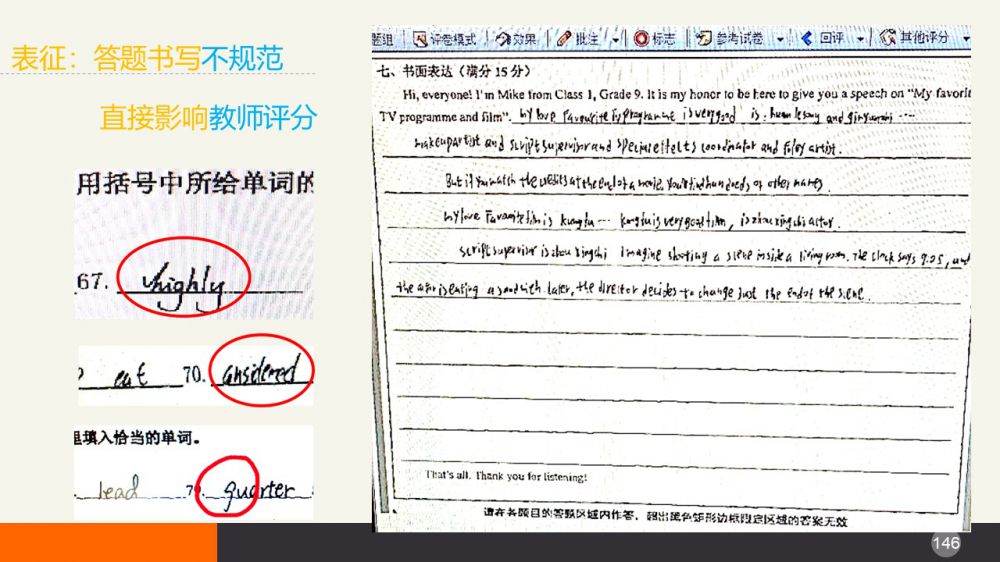 表征：答题书写不规范
直接影响教师评分
用括号中所给单词的
67. highly
eat 70. ansidered
里填入恰当的单词。
lead quarter
题组 评卷模式 效果 批注 标志 参考试卷 回评 其他评分
七、书面表达（满分 15 分）
Hi, everyone! I'm Mike from Class 1, Grade 9. It is my honor to be here to give you a speech on "My favorit
TV programme and film". my love Favourite TV programme is very good is and
makeup artist and script supervisor and special effects coordinator and foley artist.
But if you watch the credits at the end of a movie, you'll find hundreds of other names.
my love Favorite film is kungfu kungfu is very good film, is zhou xing chi actor.
script supervisor is zhou xingchi imagine shooting a scene inside a living room. The clock says 9.05, and
the actor is eating a sandwich later, the director decides to change just the end of the scene.
That's all. Thank you for listening!
请在各题目的答题区域内作答，超出黑色矩形边框限定区域的答案无效
146